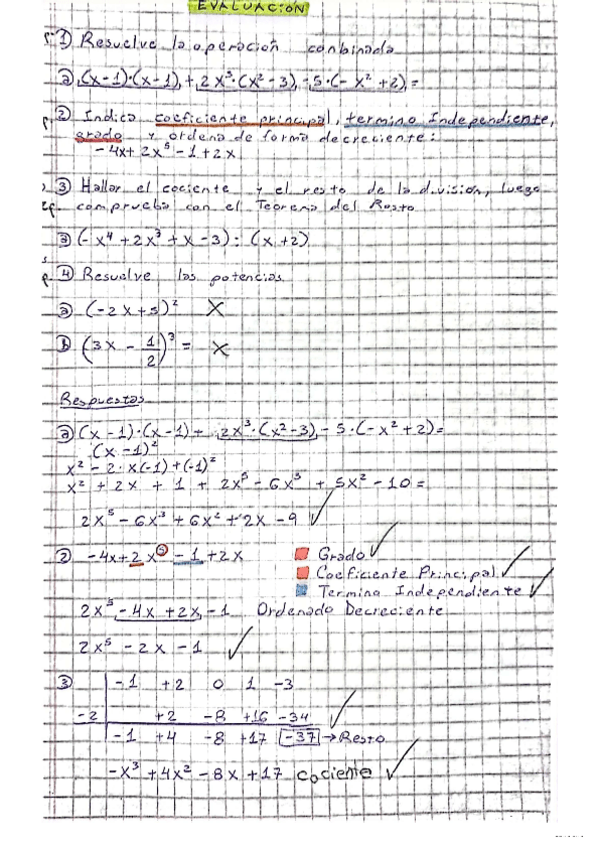 EVALUACIÓN
1) Resuelve la operación conbinada
a) (x-1)·(x-1) + 2x³·(x²-3) - 5·(-x²+2) =
2) Indica coeficiente principal, termino Independiente,
grado y ordena de forma decreciente:
-4x+2x⁵-1+2x
3) Hallar el cociente y el resto de la división, luego
comprueba con el Teorema del Resto
a) (-x⁴+2x³+x-3):(x+2)
4) Resuelve las potencias
a) (-2x+5)² X
b) (3x - 1/2)³ = X
Respuestas
a) (x-1)·(x-1) + 2x³·(x²-3) - 5·(-x²+2) =
(x-1)²
x² - 2·x(-1)+(-1)²
x² + 2x + 1 + 2x⁵ - 6x³ + 5x² - 10 =
2x⁵ - 6x³ + 6x² + 2x - 9 ✓
2) -4x+2x⁵-1+2x Grado ✓
Coeficiente Principal ✓
Termino Independiente ✓
2x⁵ -4x +2x -1 Ordenado Decreciente
2x⁵ - 2x - 1 ✓
3) -1 +2 0 1 -3
-2 +2 -8 +16 -34 ✓
-1 +4 -8 +17 -37 → Resto
-x³ + 4x² - 8x + 17 cociente ✓